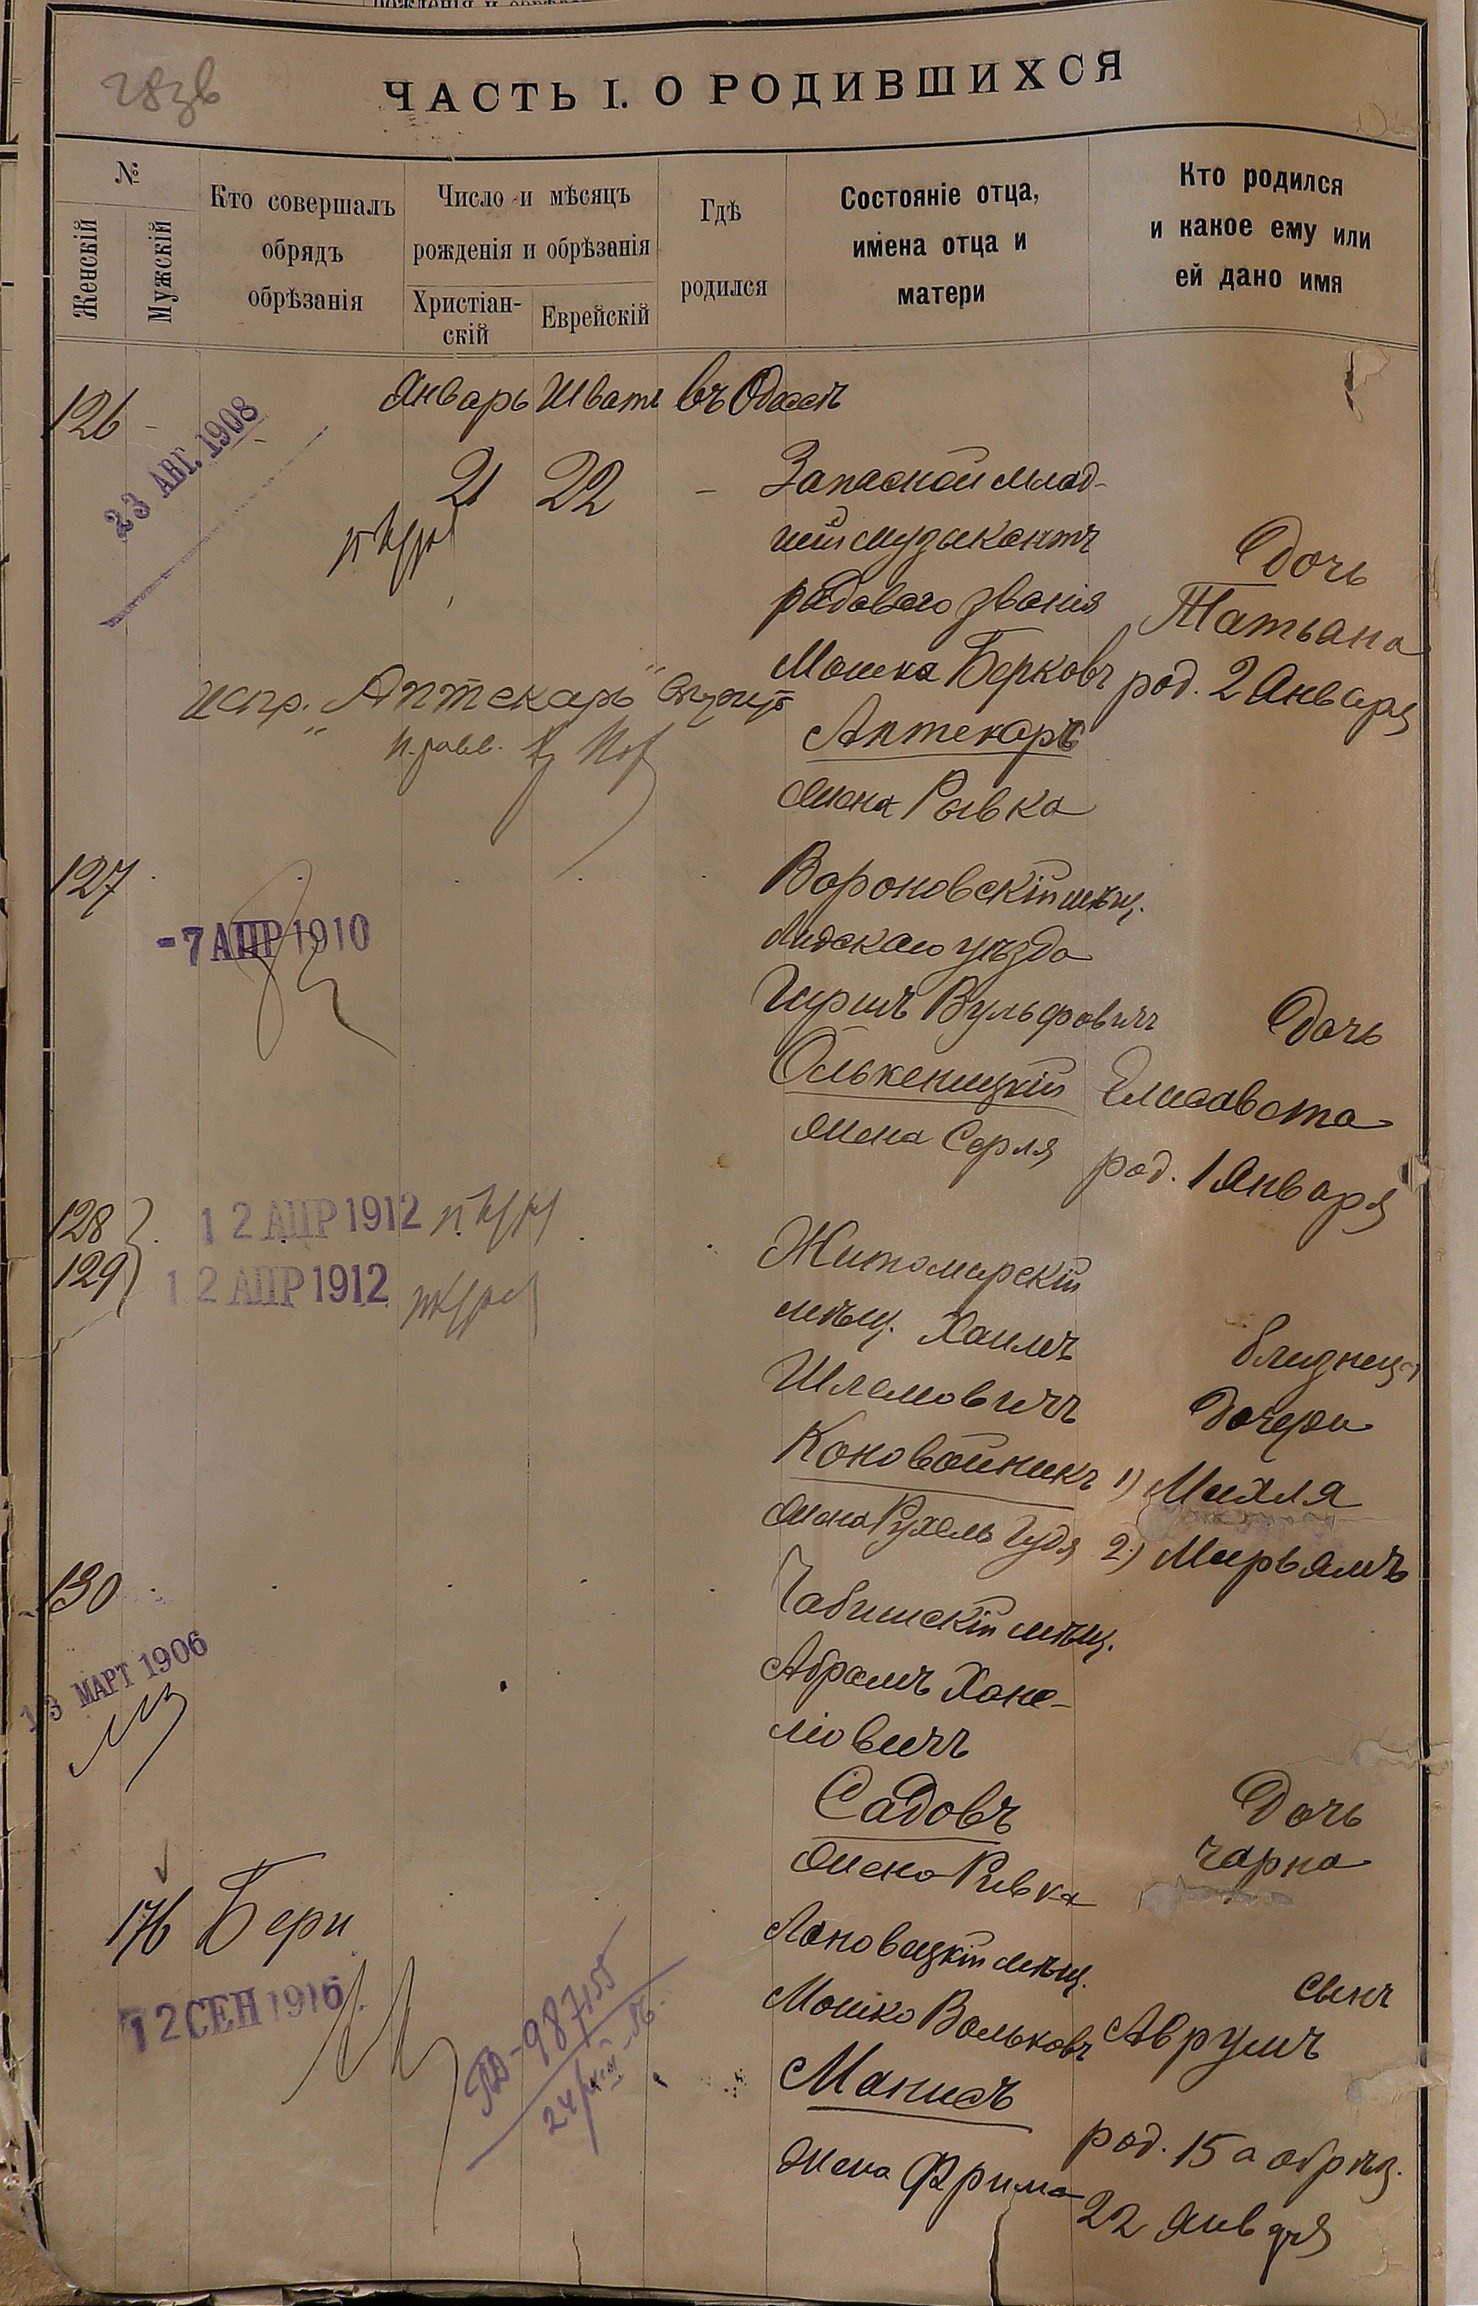 283в
ЧАСТЬ I. О РОДИВШИХСЯ
№
Женскій
Мужскій
Кто совершалъ
обрядъ
обрѣзанія
Число и мѣсяцъ
рожденія и обрѣзанія
Христіан-
скій
Еврейскій
Гдѣ
родился
Состояніе отца,
имена отца и
матери
Кто родился
и какое ему или
ей дано имя
126
23 АВГ. 1908
Январь Шватъ въ Одессѣ
21 22 -
Запасной млад-
шій музыкантъ
рядового званія
Мошка Берковъ
Аптекарь
жена Рывка
Дочь
Татьана
род. 2 Января
испр. "Аптекарь"
127
-7 АПР 1910
Вороновскій мѣщ.
Лидскаго уѣзда
Гиршъ Вульфовичъ
Олькеницкій
жена Серля
Дочь
Елисавета
род. 1 Января
128
129
12 АПР 1912
12 АПР 1912
Житомирскій
мѣщ. Хаимъ
Шлемовичъ
Коновойникъ
жена Рухель Гудя
близнецы
дочери
1) Михля
2) Мирьямъ
130
13 МАРТ 1906
мѣщ.
Абрамъ Хаке-
Садовъ
жена Ривка
Дочь
Чарна
176 Бери
12 СЕН 1916
24/
Лановецкій мѣщ.
Мошко Вольковъ
Манисъ
жена Фрима
сынъ
Аврумъ
род. 15 а обрѣз.
22 Января